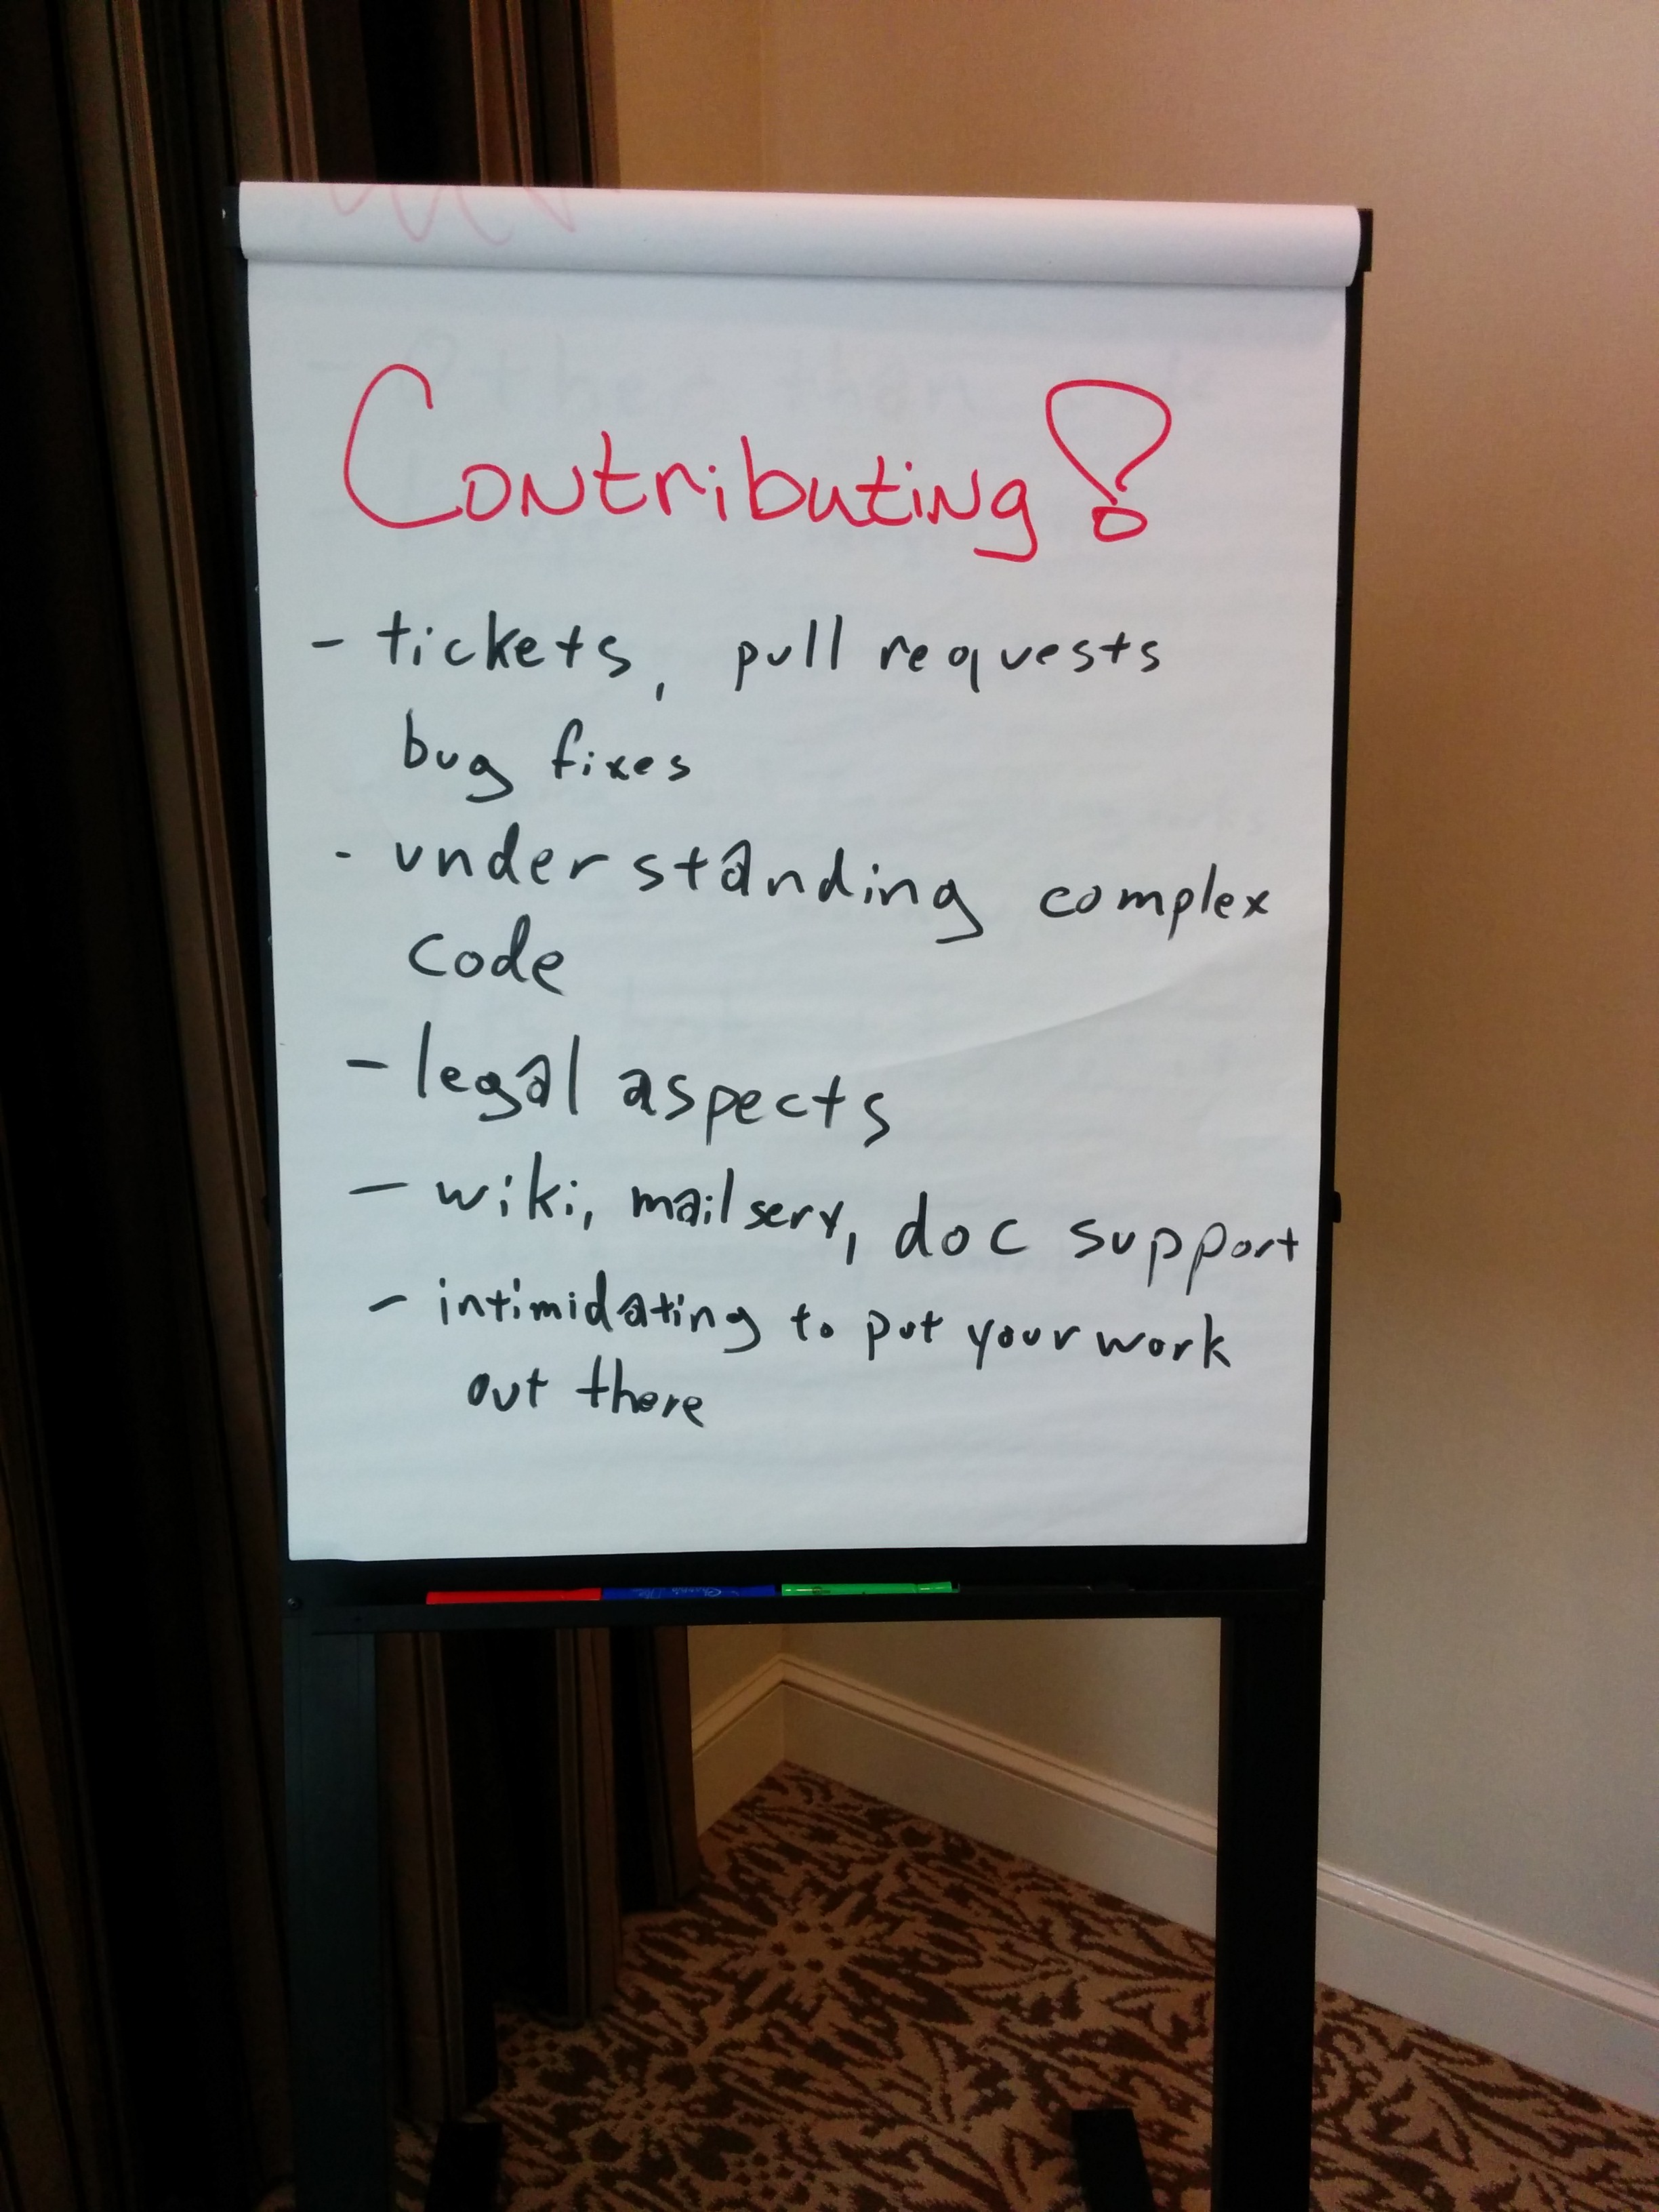 Contributing!
- tickets, pull requests
bug fixes
- understanding complex
code
- legal aspects
- wiki, mail serv, doc support
- intimidating to put your work
out there